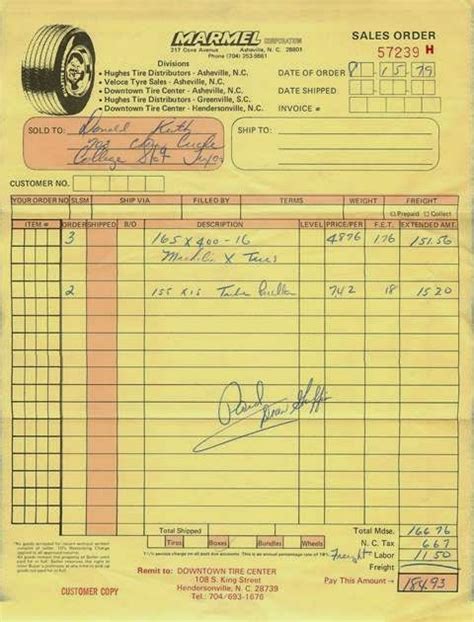 MARMEL CORPORATION
217 Cove Avenue Asheville, N.C. 28801
Phone (704) 253-9861
SALES ORDER
57239 H
Divisions
• Hughes Tire Distributors - Asheville, N.C.
• Veloce Tyre Sales - Asheville, N.C.
• Downtown Tire Center - Asheville, N.C.
• Hughes Tire Distributors - Greenville, S.C.
• Downtown Tire Center - Hendersonville, N.C.
DATE OF ORDER 8 15 79
DATE SHIPPED
INVOICE #
SOLD TO: Donald Keith
Circle
College
SHIP TO:
CUSTOMER NO.
YOUR ORDER NO SLSM SHIP VIA FILLED BY TERMS WEIGHT FREIGHT
Prepaid Collect
ITEM # ORDER SHIPPED B/O DESCRIPTION LEVEL PRICE/PER F.E.T. EXTENDED AMT.
3 165 X 400-16 4876 176 151.56
X Tires
2 155 X15 Tube 742 18 1520
Paid
Total Shipped
Tires Boxes Bundles Wheels
Total Mdse. 16676
N.C. Tax 667
Freight Labor 1150
Freight
Pay This Amount → 184.93
Remit to: DOWNTOWN TIRE CENTER
108 S. King Street
Hendersonville, N. C. 28739
Tel: 704/693-1676
CUSTOMER COPY